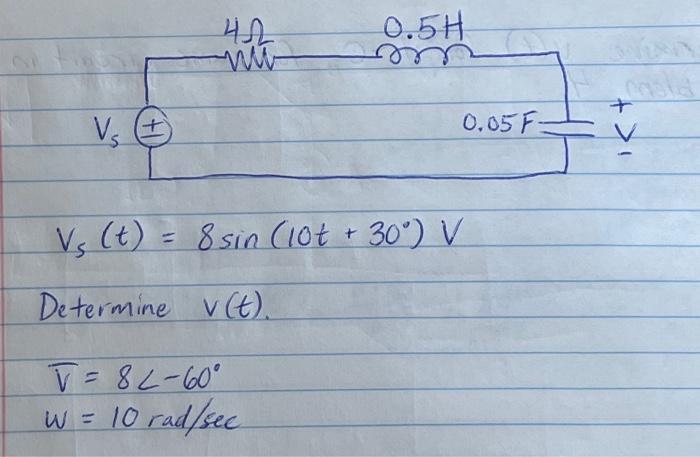 4Ω 0.5H
Vs ± 0.05F + V -
Vs (t) = 8 sin (10t + 30°) V
Determine v(t).
V̅ = 8∠-60°
W = 10 rad/sec